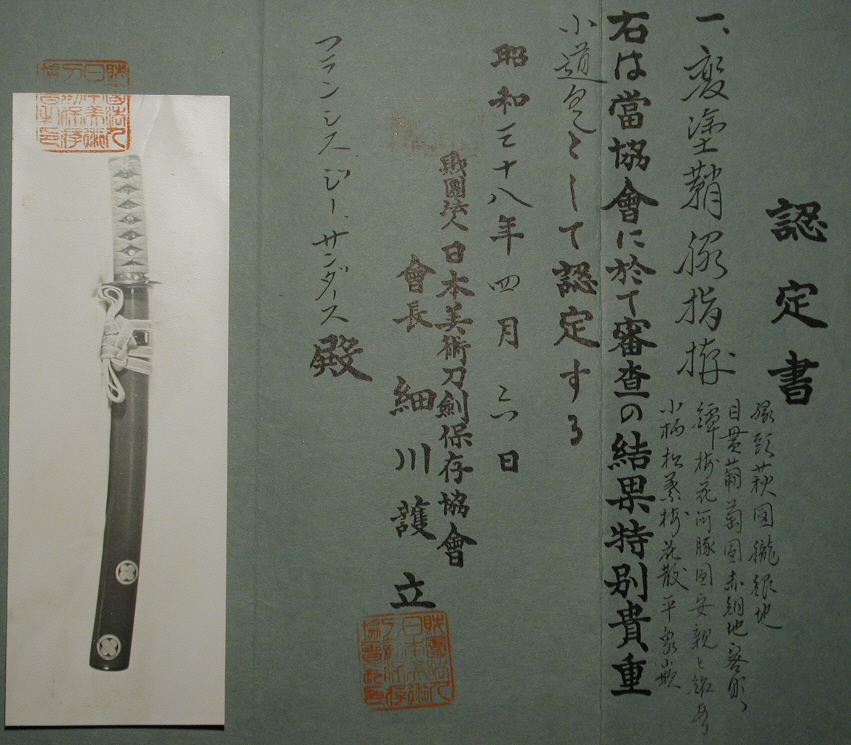 認定書
一、変塗鞘脇指拵
縁頭萩図朧銀地
目貫葡萄図赤銅地容彫、
鐔梅花河豚図安親と銘あり
小柄松葉梅花散
右は當協會に於て審査の結果特別貴重
小道具として認定する
昭和三十八年四月六日
財團法人日本美術刀劍保存協會
會長 細川護立
フランシス、ジー、サンダース 殿
財團法人日本美術刀劍保存協會